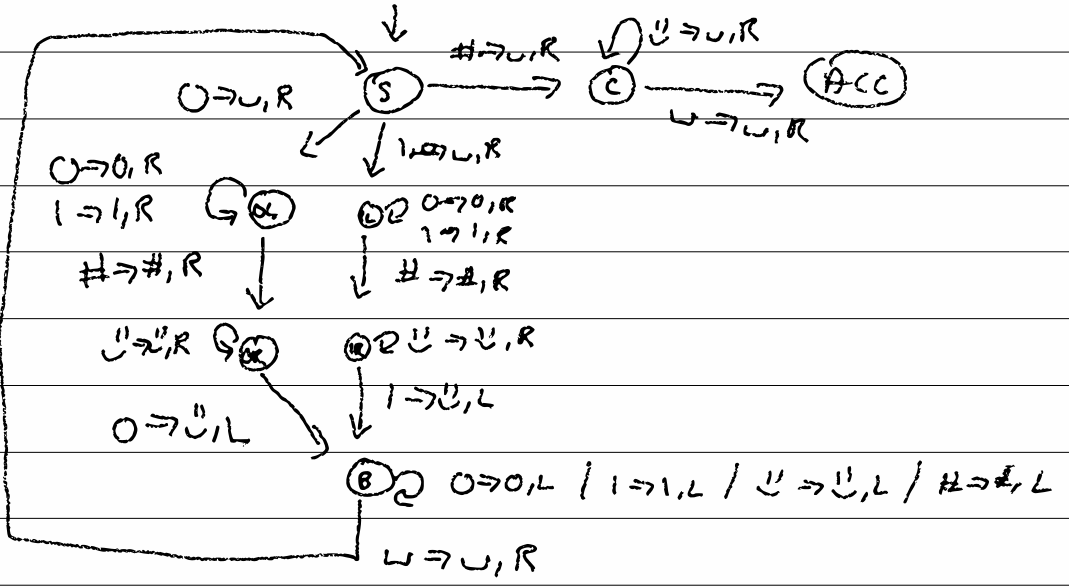 #→⊔,R
ü→⊔,R
0→⊔,R
S
C
ACC
⊔→⊔,R
1→⊔,R
0→0,R
1→1,R
0L
1L
0→0,R
1→1,R
#→#,R
#→#,R
ü→ü,R
0R
1R
ü→ü,R
1→ü,L
0→ü,L
B
0→0,L / 1→1,L / ü→ü,L / #→#,L
⊔→⊔,R